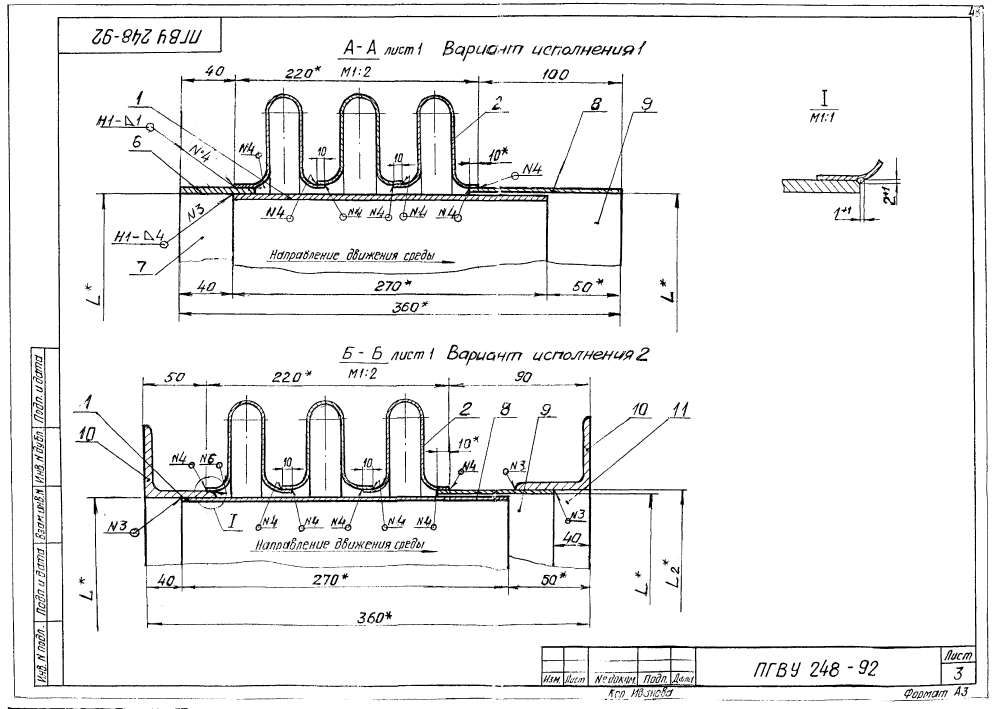 48
ПГВУ 248-92
А-А лист 1 Вариант исполнения 1
М1:2
40 220* 100
1 2 8 9
Н1-△1
6
№4 №4 10 10 10* №4
№3 №4 №4 №4 №4 №4
Н1-△4
7
Направление движения среды
L* L*
40 270* 50*
360*
I
М1:1
1+1 2±1
Б-Б лист 1 Вариант исполнения 2
М1:2
50 220* 90
1 2 8 9 10 11
10
№4 №6 10 10 10* №4 №3
№3 I №4 №4 №4 №4 №4 №3
Направление движения среды
40
L* L* L2*
40 270* 50*
360*
Инв. № подл. Подп. и дата Взам. инв. № Инв. № дубл. Подп. и дата
Изм. Лист № докум. Подп. Дата
ПГВУ 248-92
Лист
3
Коп. Иванова
Формат А3